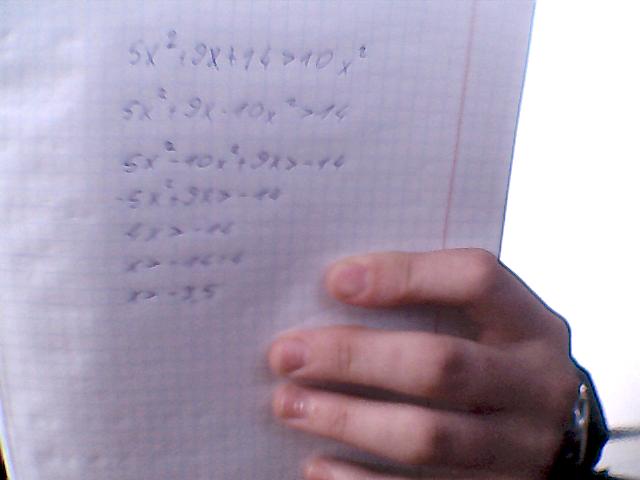 5x²+9x+14>10x²
5x²+9x-10x²>14
5x²-10x²+9x>-14
-5x²+9x>-14
4x>-14
x>-14:4
x>-3,5